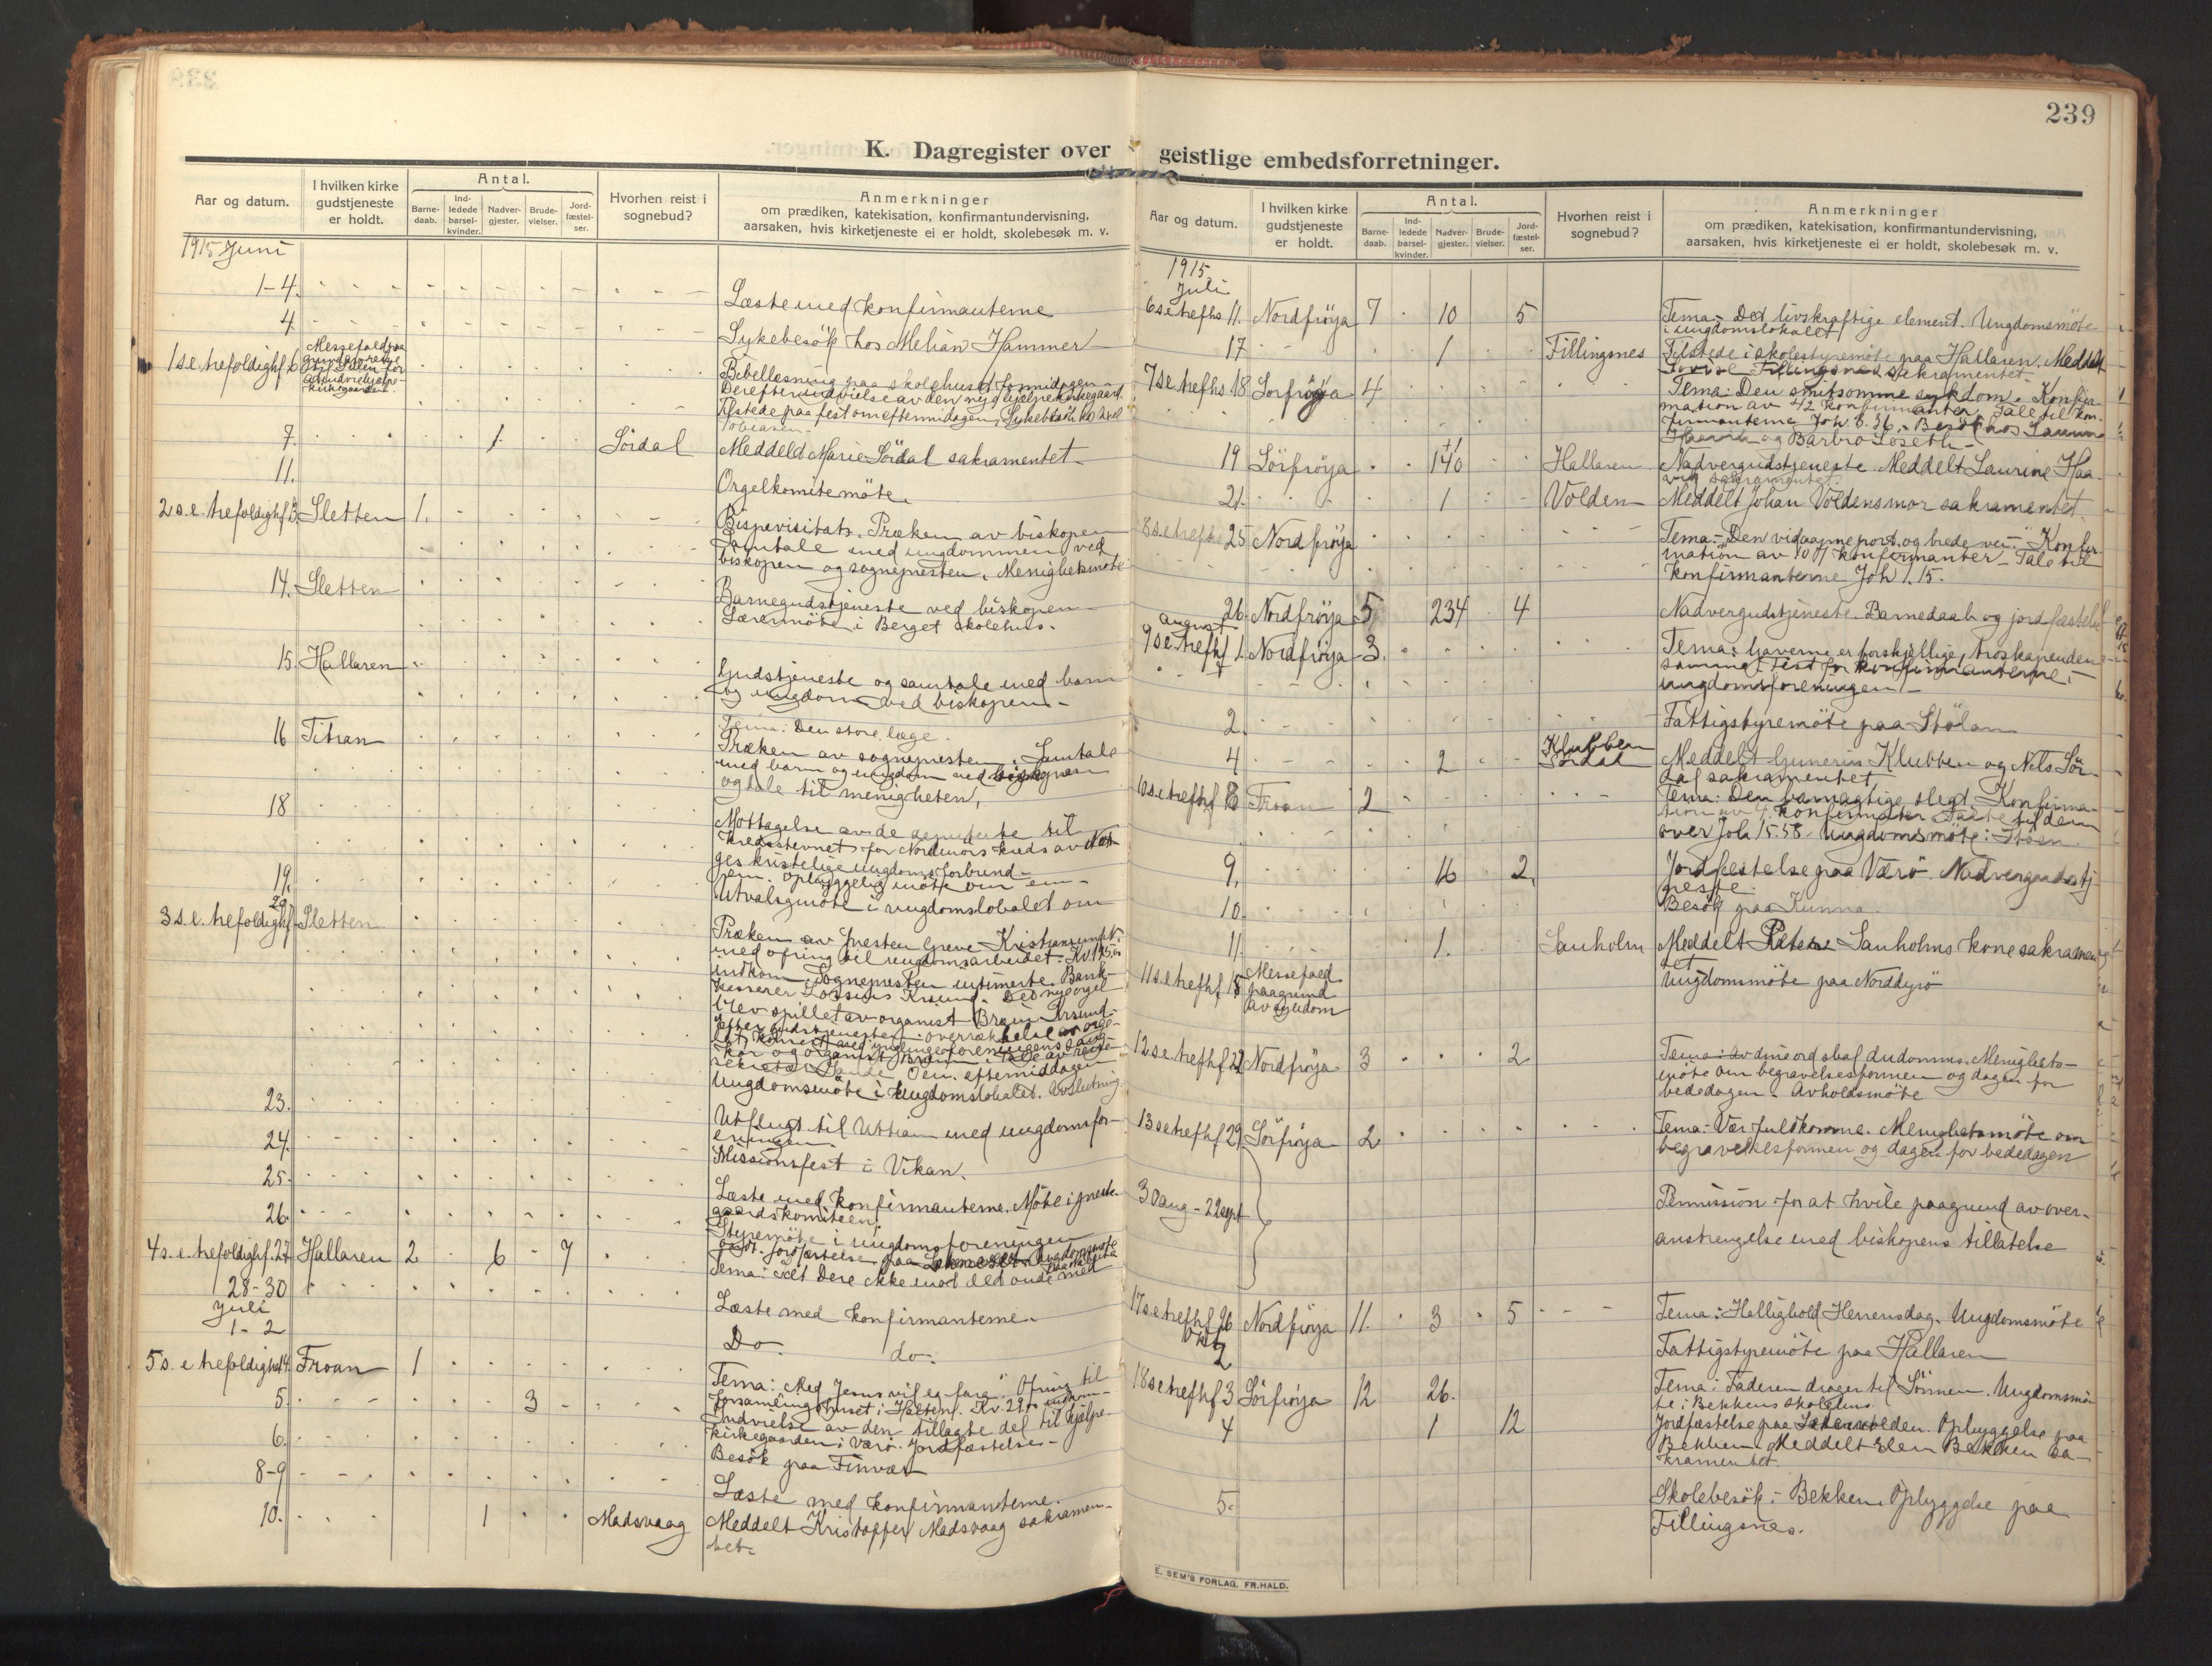 239
K. Dagregister over geistlige embedsforretninger.
Aar og datum.
I hvilken kirke
gudstjeneste
er holdt.
Antal.
Barne-
daab.
Ind-
ledede
barsel-
kvinder.
Nadver-
gjester.
Brude-
vielser.
Jord-
fæstel-
ser.
Hvorhen reist i
sognebud?
Anmerkninger
om prædiken, katekisation, konfirmantundervisning,
aarsaken, hvis kirketjeneste ei er holdt, skolebesøk m. v.
1915 Juni
1-4. Læste med konfirmanterne
4. Sykebesök hos Melian Hammer
1 s.e. trefoldighf 6 Messefald
Bibellesning paa skolehuset formidagen
Derefter indvielse av den nye hjælpekirkegaard.
Tilstede paa fest om eftermidagen. Sykebesök
7. 1. Sördal Meddeld Marie Sördal sakramentet.
11. Orgelkomitemöte.
2 s.e. trefoldighf 13. Sletten 1. Bispevisitats. Præken av biskopen
Samtale med ungdommen ved
biskopen og sognepresten. Menighetsmöte
14. Sletten Barnegudstjeneste ved biskopen
Lærermöte i Berget skolehus.
15. Hallaren Gudstjeneste og samtale med barn
og ungdom ved biskopen.
16 Titran Tema: Den store læge.
Præken av sognepresten. Samtale
med barn og ungdom ved
og tale til menigheten.
18 Mottagelse av de deputerte til
kredsstevnet for Nordmörs kreds av Nor-
ges kristelige ungdomsforbund
19. Opbyggelig möte om
Utvalgsmöte i ungdomslokalet om
20.
3 s.e. trefoldighf Sletten Præken av presten Greve Kristiansund N.
med ofring til ungdomsarbeidet. Kr. 175,00
indkom. Sognepresten intimerte. Bank-
kasserer Krsund. Det nye orgel
blev spillet av organist Bræin Krsund.
Efter gudstjenesten overrækkelse av orge-
let, koncert med ynglingeforeningens sang-
kor og organist Bræin. Tale av reise-
sekretær Oen. eftermiddagen
Ungdomsmöte i Ungdomslokalet. Avslutning
23. Utflugt til Uttian med ungdomsfor-
eningen.
24. Missionsfest i Vikan.
25. Læste med konfirmanterne. Möte i preste-
gaardskomiteen.
26. Styremöte i ungdomsforeningen
4 s.e. trefoldighf. 27 Hallaren 2 6 7 Jordfæstelse paa Ungdomsmöte
Tema: Set dere ikke imod det onde med
28-30 Læste med konfirmanterne.
Juli
1-2 Do do.
5 s.e trefoldighf 4. Froan 1 Tema: Med Jesus vil eg fara. Ofring til
forsamlingshuset i Halten. Kr. 22.00 indkom-
5. 3 Indvielse av den tillagte del til hjælpe-
kirkegaarden i Værö. Jordfæstelse
6. Besök paa Finvær
8-9 Læste med konfirmanterne.
10. 1 Madsvaag Meddelt Kristoffer Madsvaag sakramen-
tet.
Aar og datum.
I hvilken kirke
gudstjeneste
er holdt.
Antal.
Barne-
daab.
Ind-
ledede
barsel-
kvinder.
Nadver-
gjester.
Brude-
vielser.
Jord-
fæstel-
ser.
Hvorhen reist i
sognebud?
Anmerkninger
om prædiken, katekisation, konfirmantundervisning,
aarsaken, hvis kirketjeneste ei er holdt, skolebesøk m. v.
1915
Juli
6 s e trefhs 11. Nordfröya 7 10 5 Tema: Det livskraftige element. Ungdomsmöte
i ungdomslokalet
17 1 Fillingsnes Tilstede i skolestyremöte paa Hallaren. Meddelt
Fillingsnes sakramentet.
7 s e trefhs 18 Sörfröya 4 Tema: Den smitsomme sykdom. Konfir-
mation av 42 konfirmanter. Tale til kon-
firmanterne Joh. 8. 36. Besök hos Laurine
og Barbro Löseth
19 Sörfröya 140 +1 Hallaren Nadvergudstjeneste. Meddelt Laurine Haa-
sakramentet.
21. 1 Volden Meddelt Johan Voldens mor sakramentet.
8 s e trefhs 25 Nordfröya Tema: Den vidaapne port og brede vei. Konfir-
mation av konfirmanter. Tale til
konfirmanterne Joh 1. 15.
26. Nordfröya 5 234 4 Nadvergudstjeneste. Barnedaab og jordfæstelse
August
9 s e. trefhf 1. Nordfröya 3. Tema: Gaverne er forskjellige, troskapen den
samme. Fest for konfirmanterne i
ungdomsforeningen
2. Fattigstyremöte paa Stölan
4 2 Klubben
Sördal Meddelt Gunerius Klubben og Nels Sör-
dal sakramentet
10 s e trefhf 8 Froan 2 Tema: Den vanagtige slegt. Konfirma-
tion av konfirmanter. Tale til dem
over Joh 15.58. Ungdomsmöte i Stöen.
9. 16 2. Jordfestelse paa Værö. Nadvergudstj
neste.
10. Besök paa Kunna.
11. 1. Sauholm Meddelt Sauholms kone sakramen
tet
11 s e trefhf 15 Messefald
paagrund
av sykdom Ungdomsmöte paa Norddyrö
12 s e. trefhf 22 Nordfröya 3 2 Tema: Av dine ord skal du dommes. Menighets-
möte om begravelsesformen og dagen for
bededagen. Avholdsmöte
13 s e trefhf 29. Sörfröya 2 Tema: Vær fuldkomne. Menighetsmöte om
begravelsesformen og dagen for bededagen
30 aug - 22 sept Permission for at hvile paagrund av over-
anstrengelse med biskopens tillatelse
17 s e trefhf 26 Nordfröya 11. 3 5 Tema: Helligholdt Herrens dag. Ungdomsmöte
Okt
2 Fattigstyremöte paa Hallaren
18 s e trefhf 3 Sörfröya 12 26. Tema: Faderen drager til Sönnen. Ungdomsmö-
te i Bekkens skolehus.
4 1 12 Jordfæstelse paa Sætervolden. Opbyggelse paa
Bekken. Meddelt Elen Bekken sa-
kramentet.
5. Skolebesök i Bekken. Opbyggelse paa
Fillingsnes.
E. SEM'S FORLAG, FR.HALD.